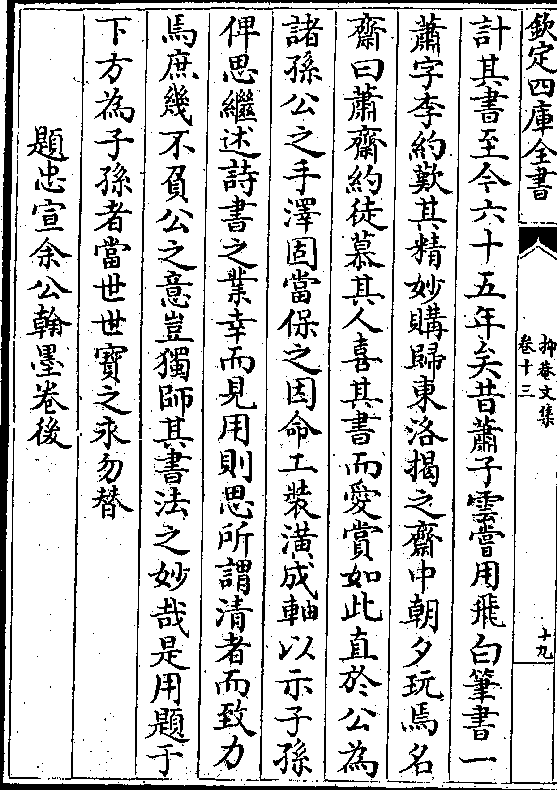 欽定四庫全書
抑菴文集
卷十三
十九
計其書至今六十五年矣昔蕭子雲嘗用飛白筆書一
蕭字李約歎其精妙購歸東洛揭之齋中朝夕玩焉名
齋曰蕭齋約徒慕其人喜其書而愛賞如此直於公為
諸孫公之手澤固當保之因命工裝潢成軸以示子孫
俾思繼述詩書之業幸而見用則思所謂清者而致力
焉庶幾不負公之意豈獨師其書法之妙哉是用題于
下方為子孫者當世世寶之永勿替
題忠宣余公翰墨卷後